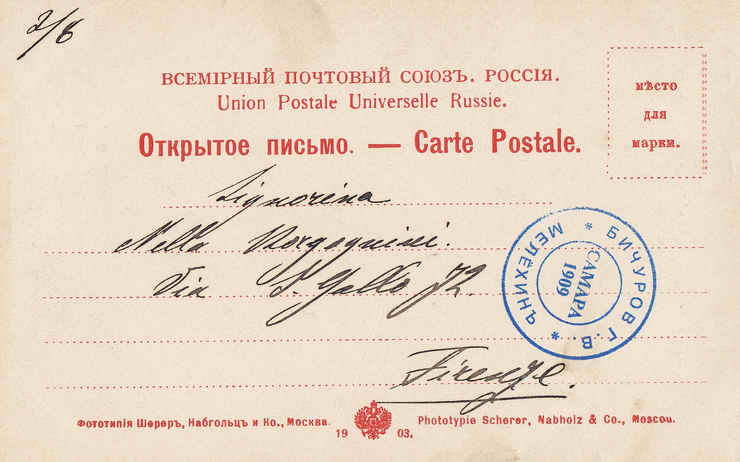 2/8
ВСЕМІРНЫЙ ПОЧТОВЫЙ СОЮЗЪ. РОССІЯ.
Union Postale Universelle Russie.
Открытое письмо. — Carte Postale.
мѣсто
для
марки.
Signorina
Nella
Via S. Gallo 72.
Firenze.
БИЧУРОВ Г.В. * МЕЛЁХИН *
САМАРА
1909
Фототипія Шереръ, Набгольцъ и Ко., Москва.
1903.
Phototypie Scherer, Nabholz & Co., Moscou.